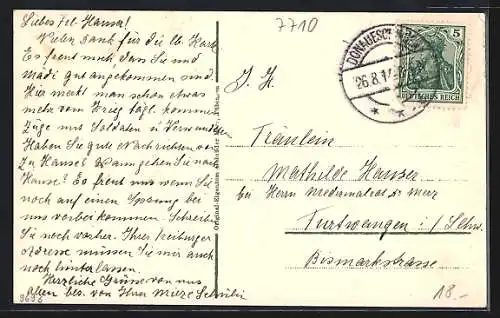 7710
Liebes Frl. Hauser!
Vielen Dank für die lb. Karte
Es freut mich dass Sie und
Mädi gut angekommen sind
Hier merkt man schon etwas
mehr vom Krieg tägl. kommen
Züge mit Soldaten u Verwundeten
Haben Sie gute Nachrichten von
zu Hause? Wann gehen Sie nach
Hause? Es freut uns wenn Sie
noch auf einen Sprung bei
uns vorbei kommen. Schreiben
Sie noch vorher. Ihre Freiburger
Adresse müssen Sie mir auch
noch hinterlassen.
Herzliche Grüsse von uns
Allen bes. von Ihrer Mieze
9696
Original-Eigentum
DONAUESCHINGEN
26.8.14
5
DEUTSCHES REICH
S. H.
Fräulein
Mathilde Hauser
bei Herrn Medizinalrat Dr Merz
Furtwangen i/ Schw.
Bismarkstrasse
18.-